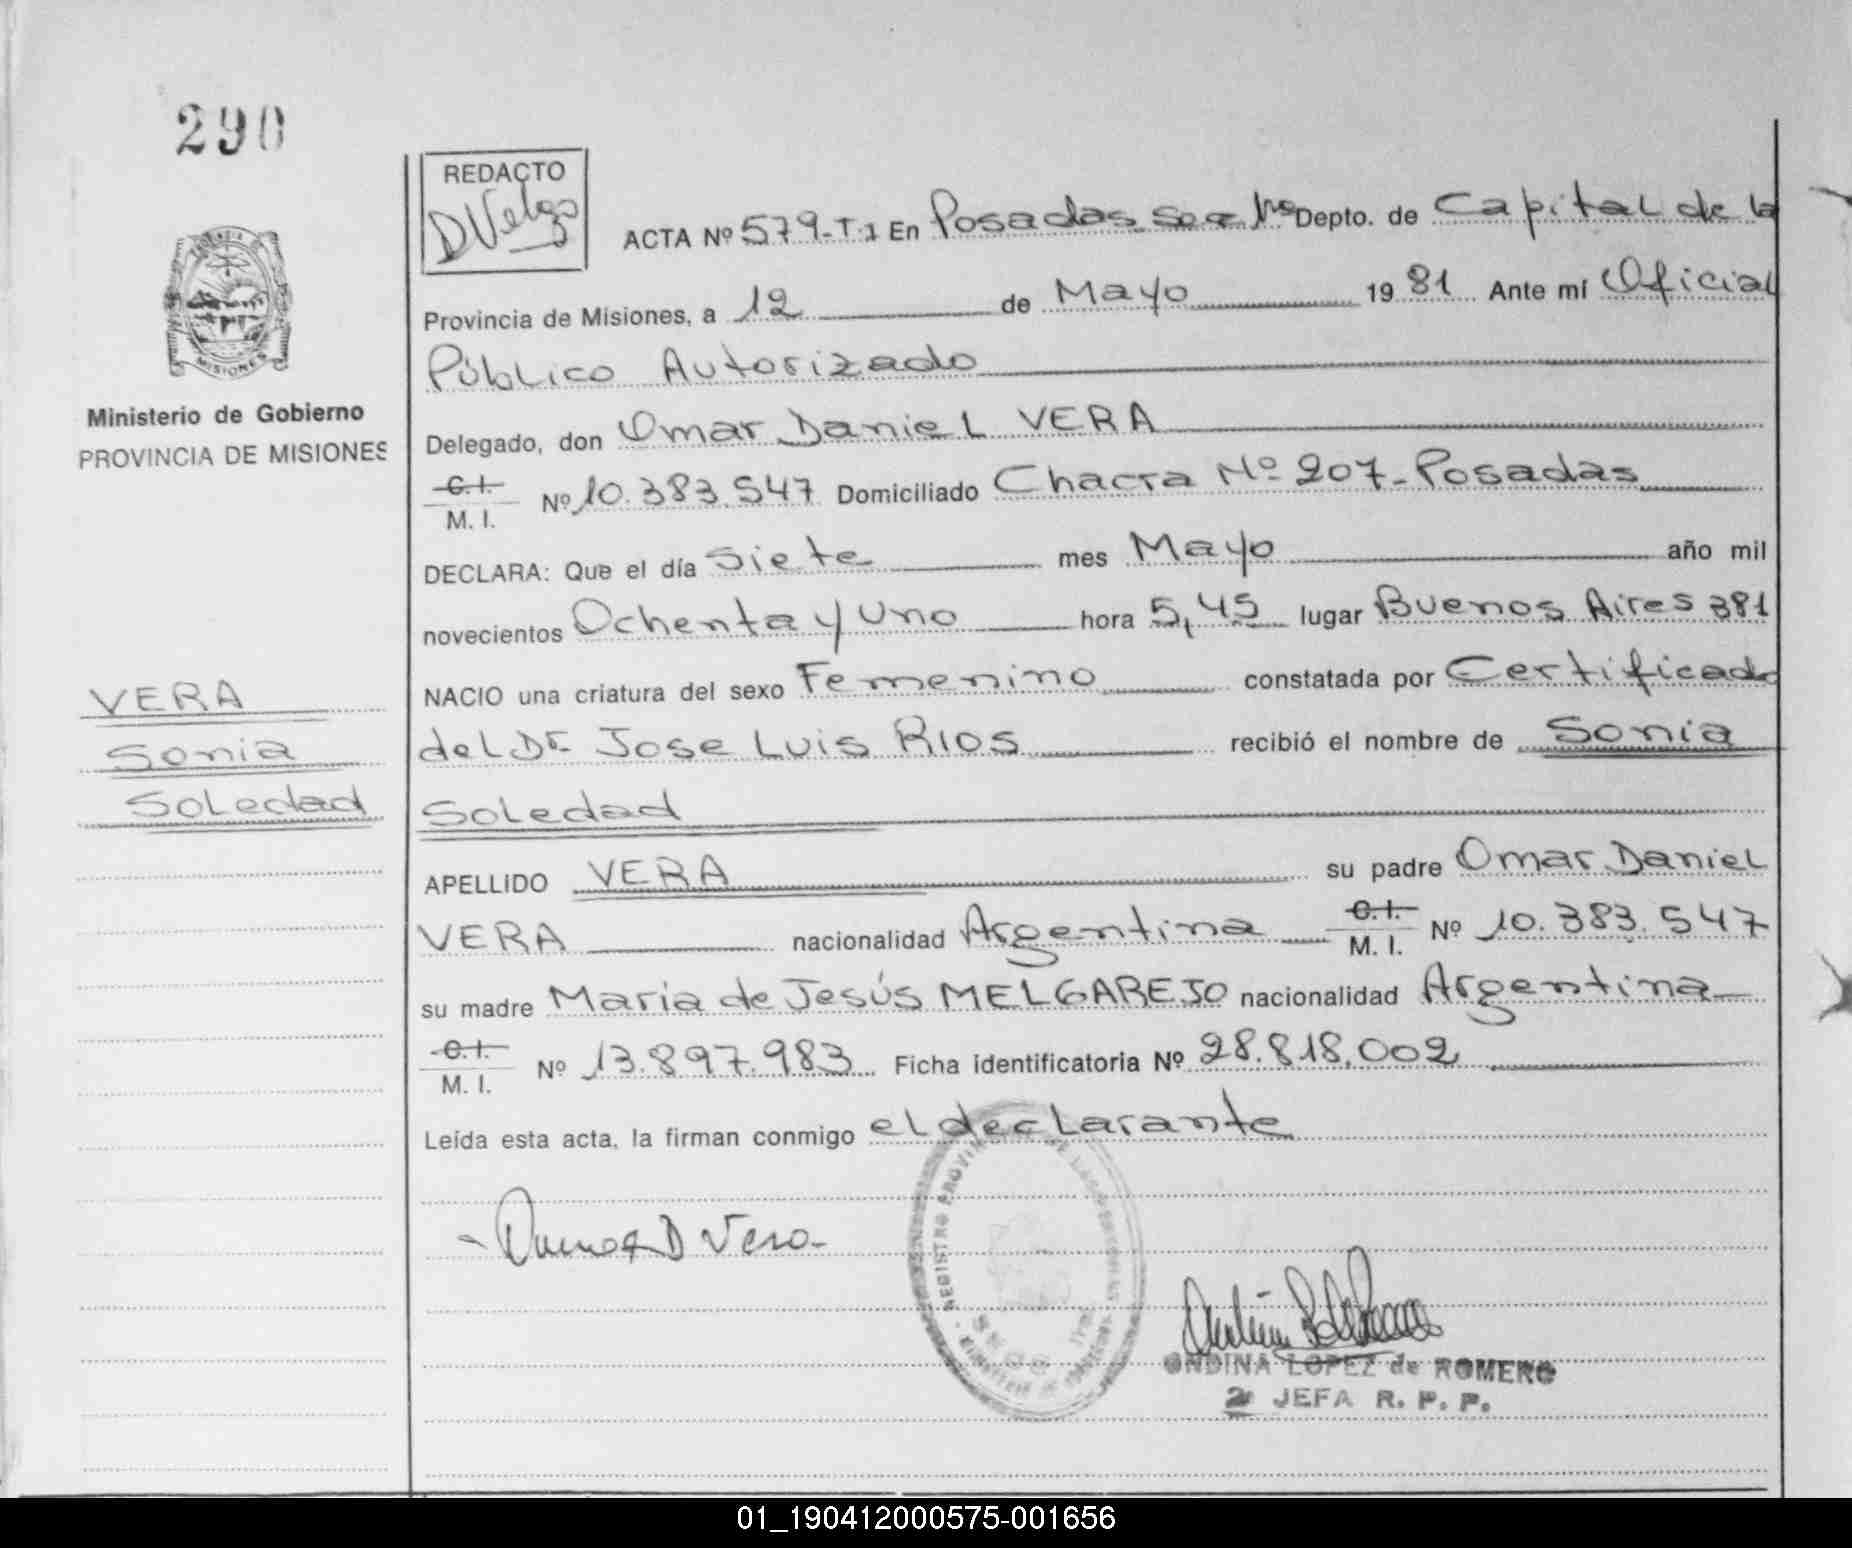 290
REDACTO
ACTA Nº 579-T.1 En Posadas Depto. de Capital de la
Provincia de Misiones, a 12 de Mayo 1981 Ante mí Oficial
Público Autorizado
Ministerio de Gobierno
PROVINCIA DE MISIONES
MISIONES
Delegado, don Omar Daniel VERA
C. I.
M. I. Nº 10.383.547 Domiciliado Chacra Nº 207-Posadas
DECLARA: Que el día Siete mes Mayo año mil
novecientos Ochenta y Uno hora 5,45 lugar Buenos Aires 381
NACIO una criatura del sexo Femenino constatada por Certificado
del Dr Jose Luis RIOS recibió el nombre de Sonia
Soledad
VERA
Sonia
Soledad
APELLIDO VERA su padre Omar Daniel
VERA nacionalidad Argentina C. I. M. I. Nº 10.383.547
su madre Maria de Jesús MELGAREJO nacionalidad Argentina
C. I.
M. I. Nº 13.897.983 Ficha identificatoria Nº 28.818.002
Leída esta acta, la firman conmigo el declarante
REGISTRO
ONDINA LOPEZ de ROMERO
2 JEFA R. P. P.
01_190412000575-001656